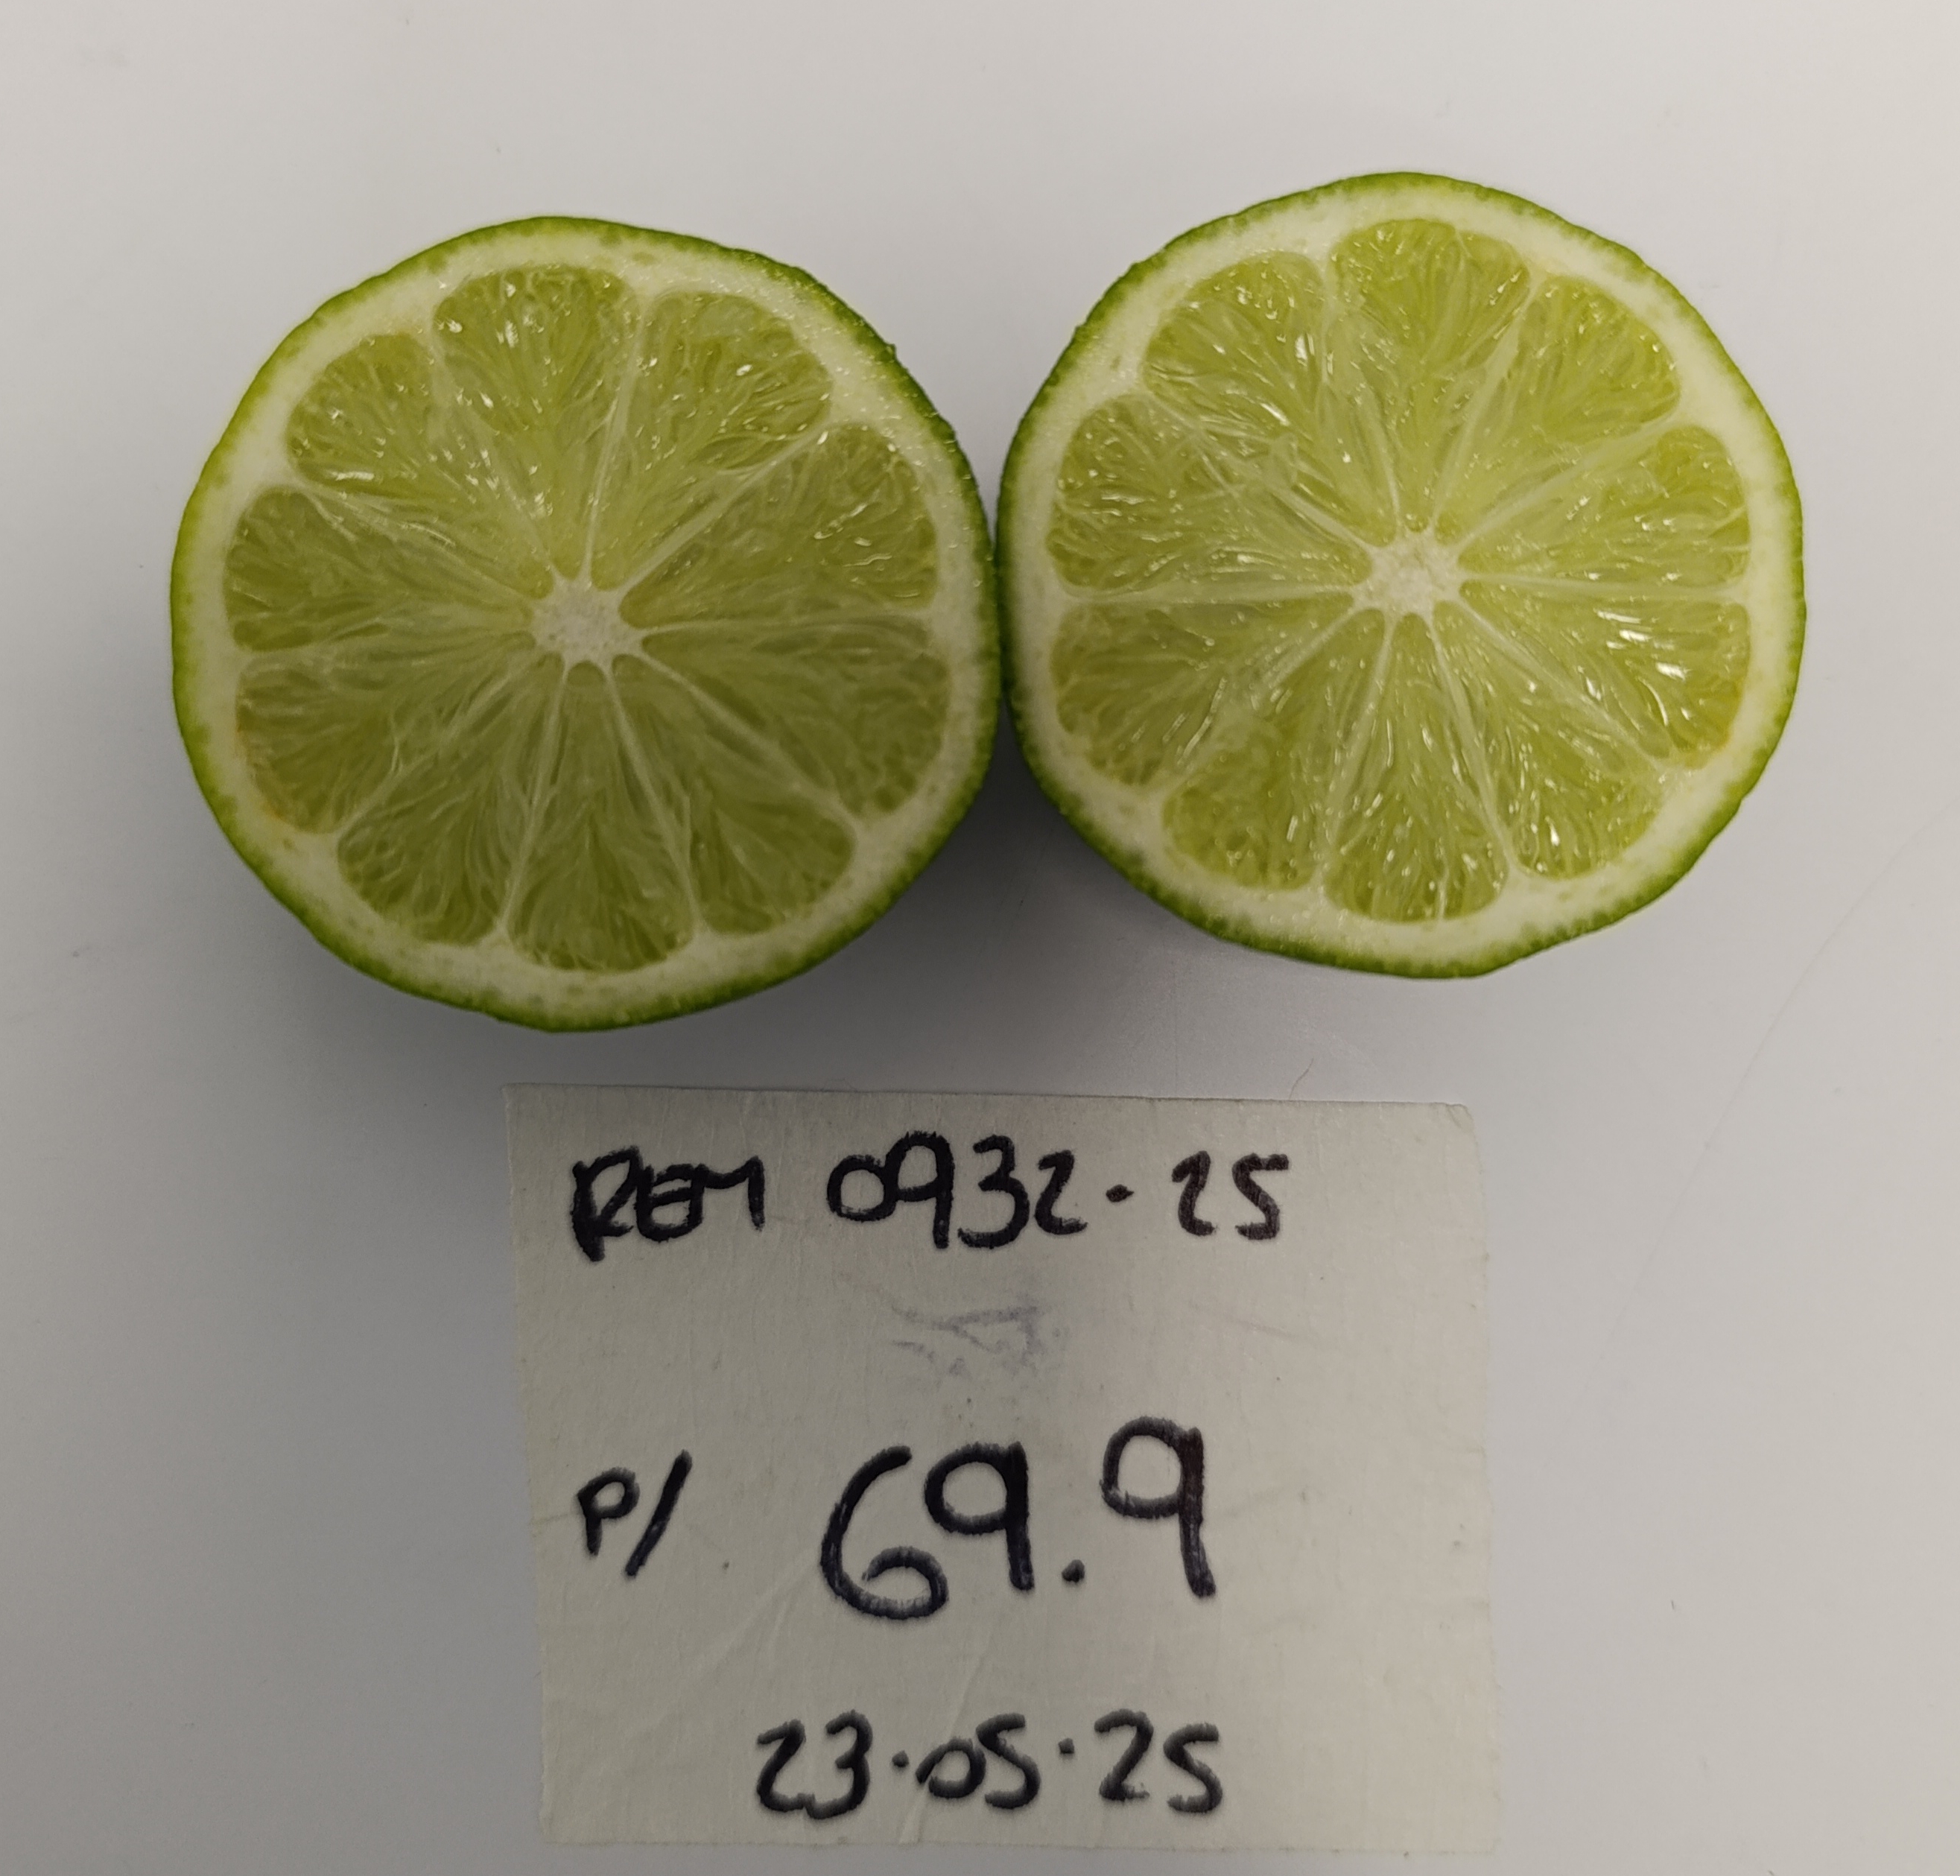 REM 0932-25
P/ 69.9
23.05.25